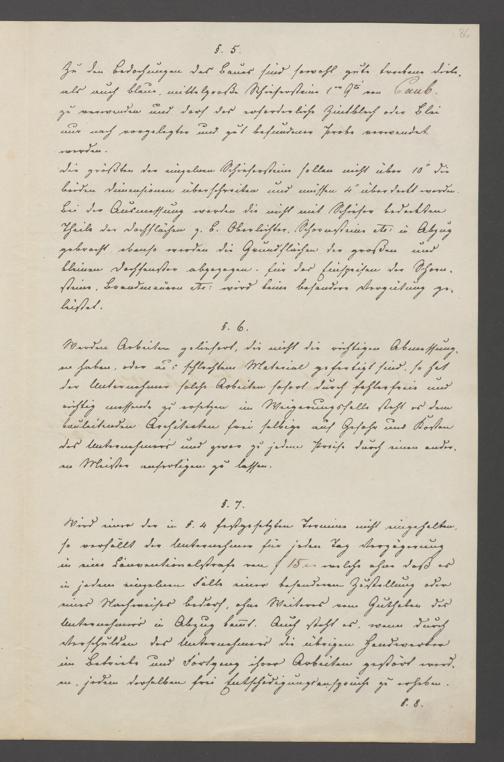 86
§. 5.
Zu den Bedachungen des Baues sind sowohl gute trockene Diele,
als auch blaue, mittelgroße Schiefersteine 1ᵐᵃ Qᵗᵃ von Caub.
zu verwenden und darf das erforderliche Zinkblech oder Blei
nur nach vorgelegter und gut befundener Probe verwendet
werden.
Die größten der einzelnen Schiefersteine sollen nicht über 10" die
beiden Dimensionen überschreiten und müssen 4" überdeckt werden.
Bei der Ausmessung werden die nicht mit Schiefer bedeckten
Theile der Dachflächen z. B. Oberlichter, Schornsteine etc: in Abzug
gebracht ebenso werden die Grundflächen der großen und
kleinen Dachfenster abgezogen. Für das Einspeisen der Schorn-
steine, Brandmauern etc: wird keine besondere Vergütung ge-
leistet.
§. 6.
Werden Arbeiten geliefert, die nicht die richtigen Abmessung-
en haben, oder aus schlechtem Material gefertigt sind, so hat
der Unternehmer solche Arbeiten sofort durch fehlerfreie und
richtig messende zu ersetzen im Weigerungsfalle steht es dem
bauleitenden Architekten frei selbige auf Gefahr und Kosten
des Unternehmers und zwar zu jedem Preise durch einen ander-
en Meister anfertigen zu lassen.
§. 7.
Wird einer der in §. 4 festgesetzten Termine nicht eingehalten,
so verfällt der Unternehmer für jeden Tag Verzögerung
in eine Conventionalstrafe von f 15 welche ohne daß es
in jedem einzelnen Falle einer besonderen Zustellung oder
eines Nachweises bedarf, ohne Weiteres vom Guthaben des
Unternehmers in Abzug kommt. Auch steht es, wenn durch
Verschulden des Unternehmers die übrigen Handwerker
im Betriebe und Fortgang ihrer Arbeiten gestört werd-
en, jedem derselben frei Entschädigungsansprüche zu erheben.
§. 8.